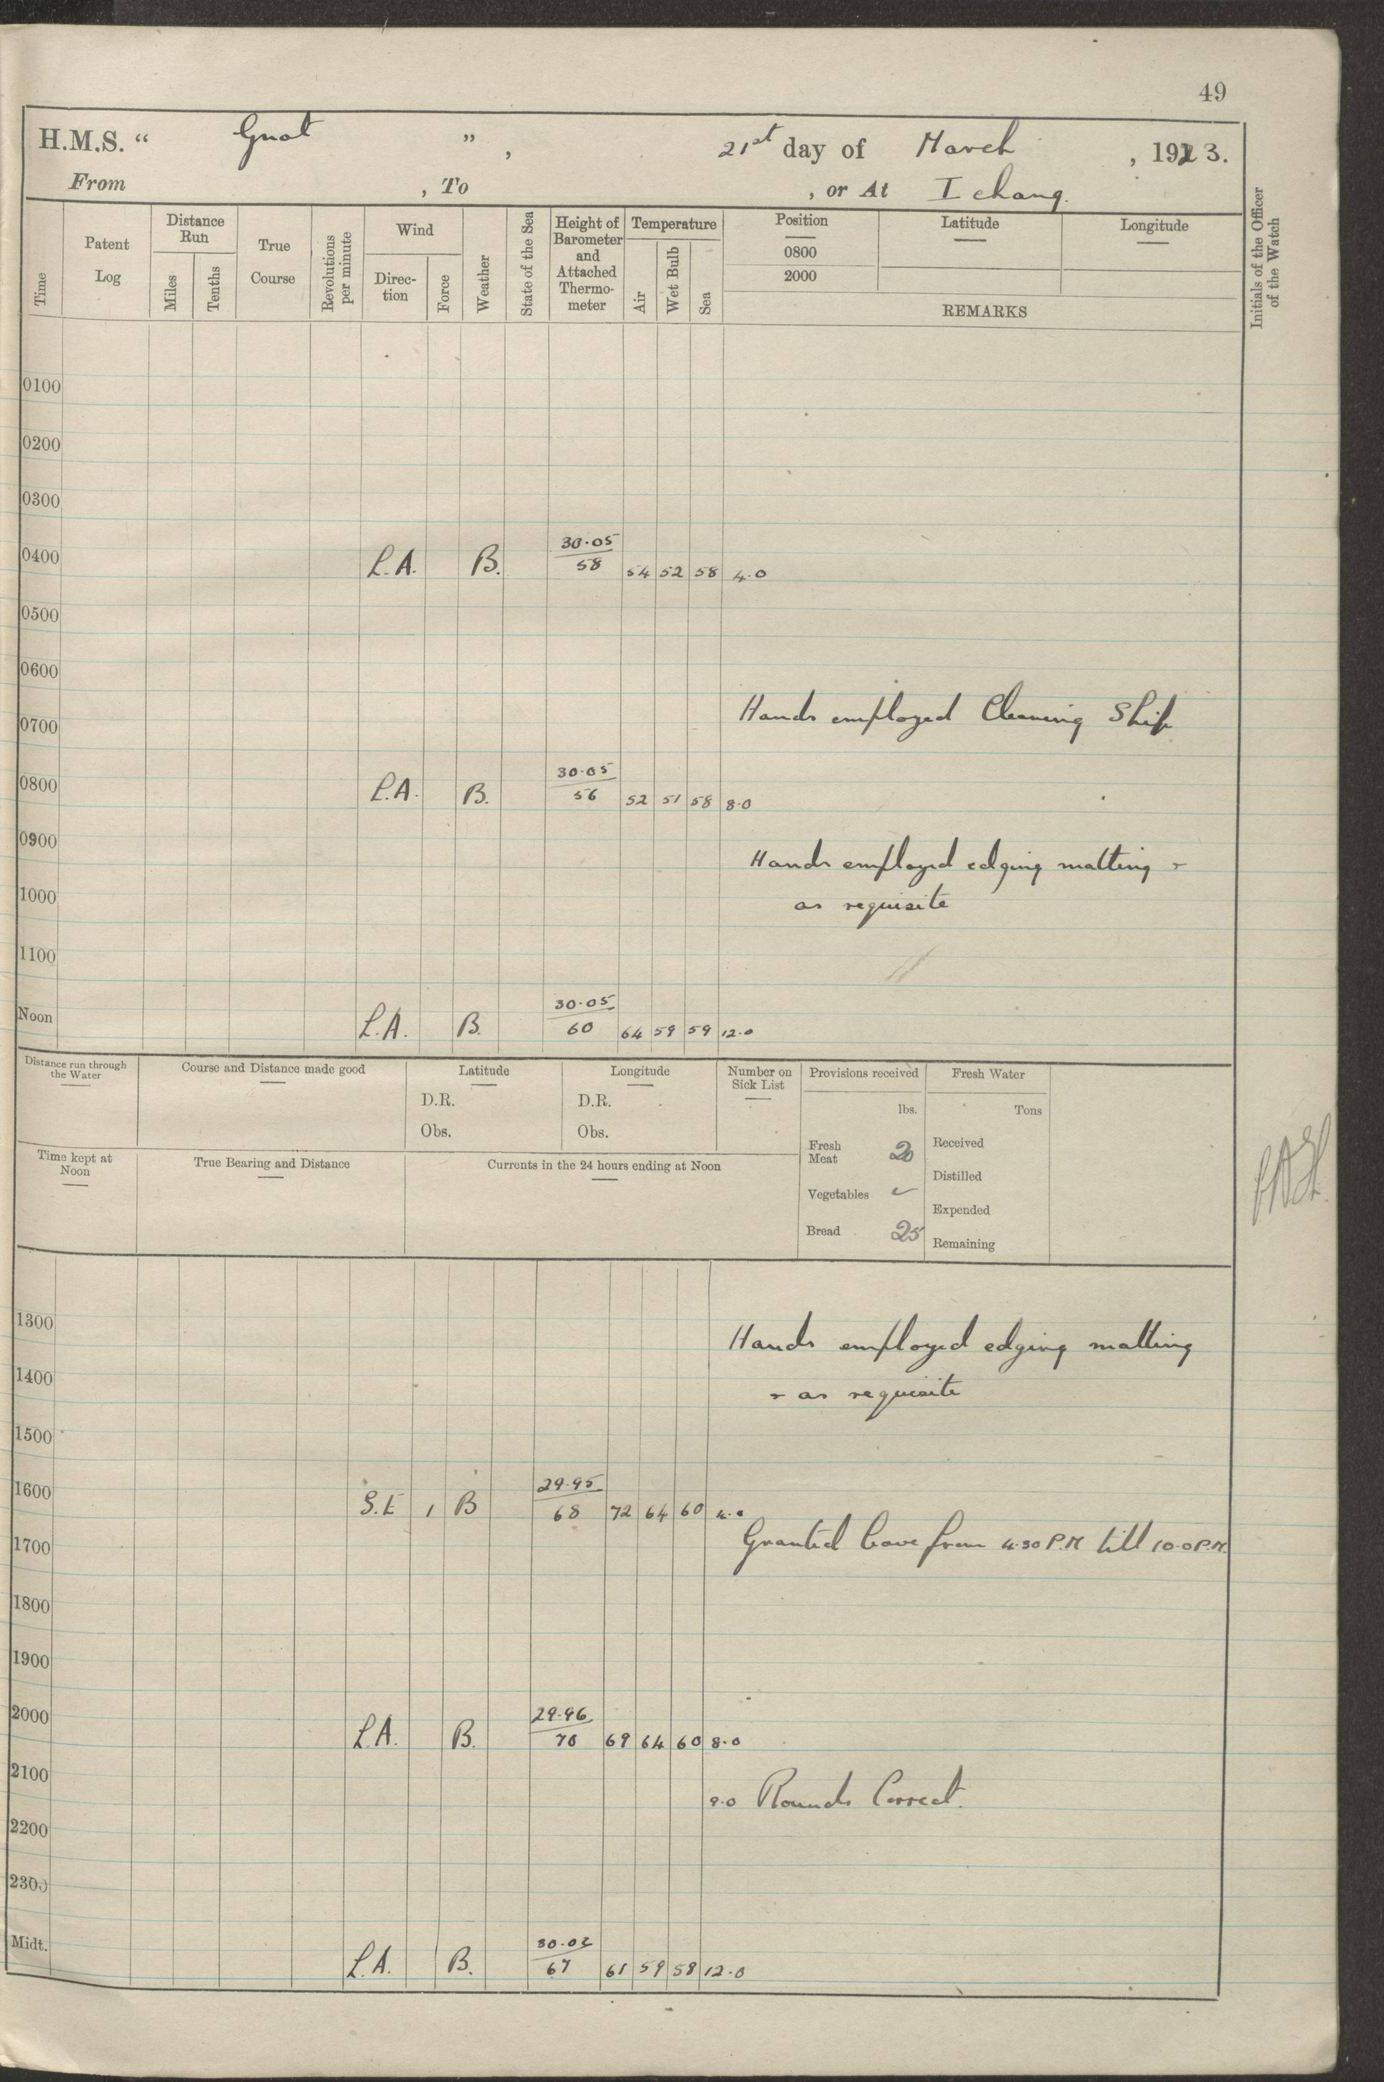 49
H.M.S. “ Gnat ”, 21st day of March, 1923.
From , To , or At Ichang.
Time
Patent Log
Distance Run
Miles
Tenths
True Course
Revolutions per minute
Wind
Direc-tion
Force
Weather
State of the Sea
Height of Barometer and Attached Thermo-meter
Temperature
Air
Wet Bulb
Sea
Position
0800
2000
Latitude
Longitude
REMARKS
Initials of the Officer of the Watch
0100
0200
0300
0400 L.A. B. 30.05 58 54 52 58 4.0
0500
0600
0700 Hands employed Cleaning Ship
0800 L.A. B. 30.05 56 52 51 58 8.0
0900 Hands employed edging matting +
1000 as requisite
1100
Noon L.A. B. 30.05 60 64 59 59 12.0
Distance run through the Water
Course and Distance made good
Latitude
D.R.
Obs.
Longitude
D.R.
Obs.
Number on Sick List
Provisions received
lbs.
Fresh Meat 20
Vegetables
Bread 25
Fresh Water
Tons
Received
Distilled
Expended
Remaining
Time kept at Noon
True Bearing and Distance
Currents in the 24 hours ending at Noon
1300 Hands employed edging matting
1400 + as requisite
1500
1600 S.E 1 B 29.95 68 72 64 60 4.0
1700 Granted leave from 4.30 P.M till 10.0 P.M.
1800
1900
2000 L.A. B. 29.96 70 69 64 60 8.0
2100 9.0 Rounds Correct.
2200
2300
Midt. L.A. B. 30.02 67 61 59 58 12.0